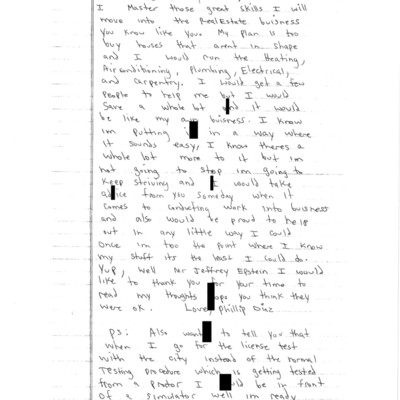 I Master those great skills I will
move into the RealEstate buisness
you know like you. My plan is too
buy houses that arent in shape
and I would run the Heating,
Airconditioning, Plumbing, Electrical,
and Carpentry. I would get a few
People to help me but I would
Save a whole lot and it would
be like my own buisness. I know
im putting in in a way where
it sounds easy, I know theres a
whole lot more to it but im
not going to stop im going to
keep striving and I would take
advice from you someday when it
comes to conducting work into business
and also would be proud to help
out in any little way I could
once im too the point where I know
my stuff its the least I could do.
Yup, well Mr Jeffrey Epstein I would
like to thank you for your time to
read my thoughts hope you think they
were ok. Love, Phillip
PS: Also to tell you that
when I go for the license test
with the city instead of the normal
Testing procedure which is getting tested
from a I be in front
of a simulator well im ready